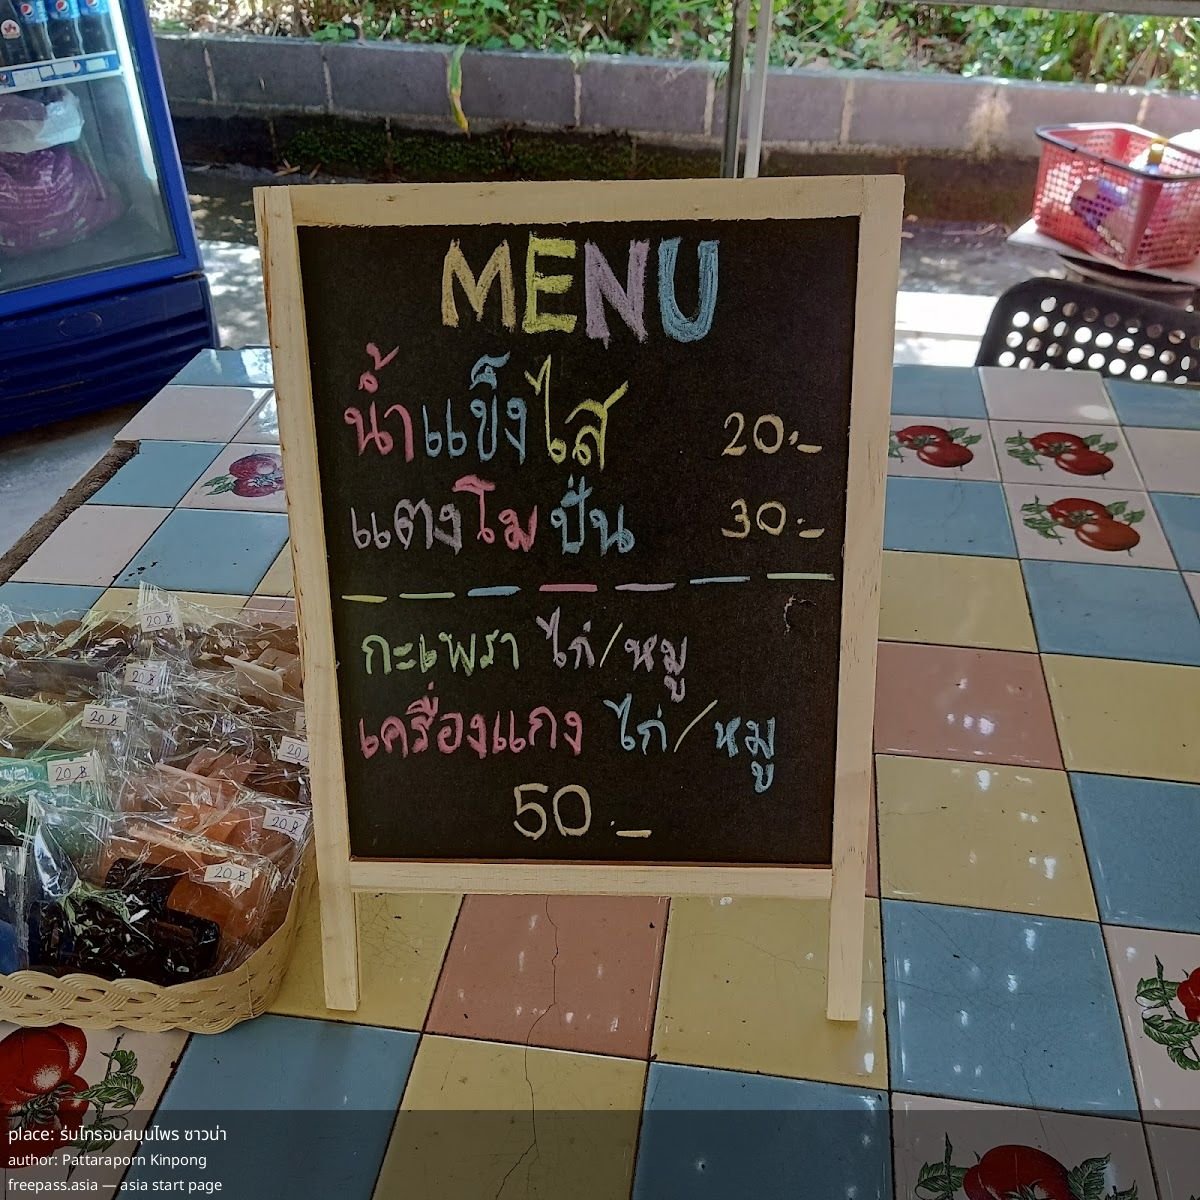 MENU
น้ำแข็งไส 20.-
แตงโมปั่น 30.-
กะเพรา ไก่/หมู
เครื่องแกง ไก่/หมู
50.-
20 ฿
20 ฿
20 ฿
20 ฿
20 ฿
20 ฿
20 ฿
place: ร่มไทรอบสมุนไพร ซาวน่า
author: Pattaraporn Kinpong
freepass.asia — asia start page